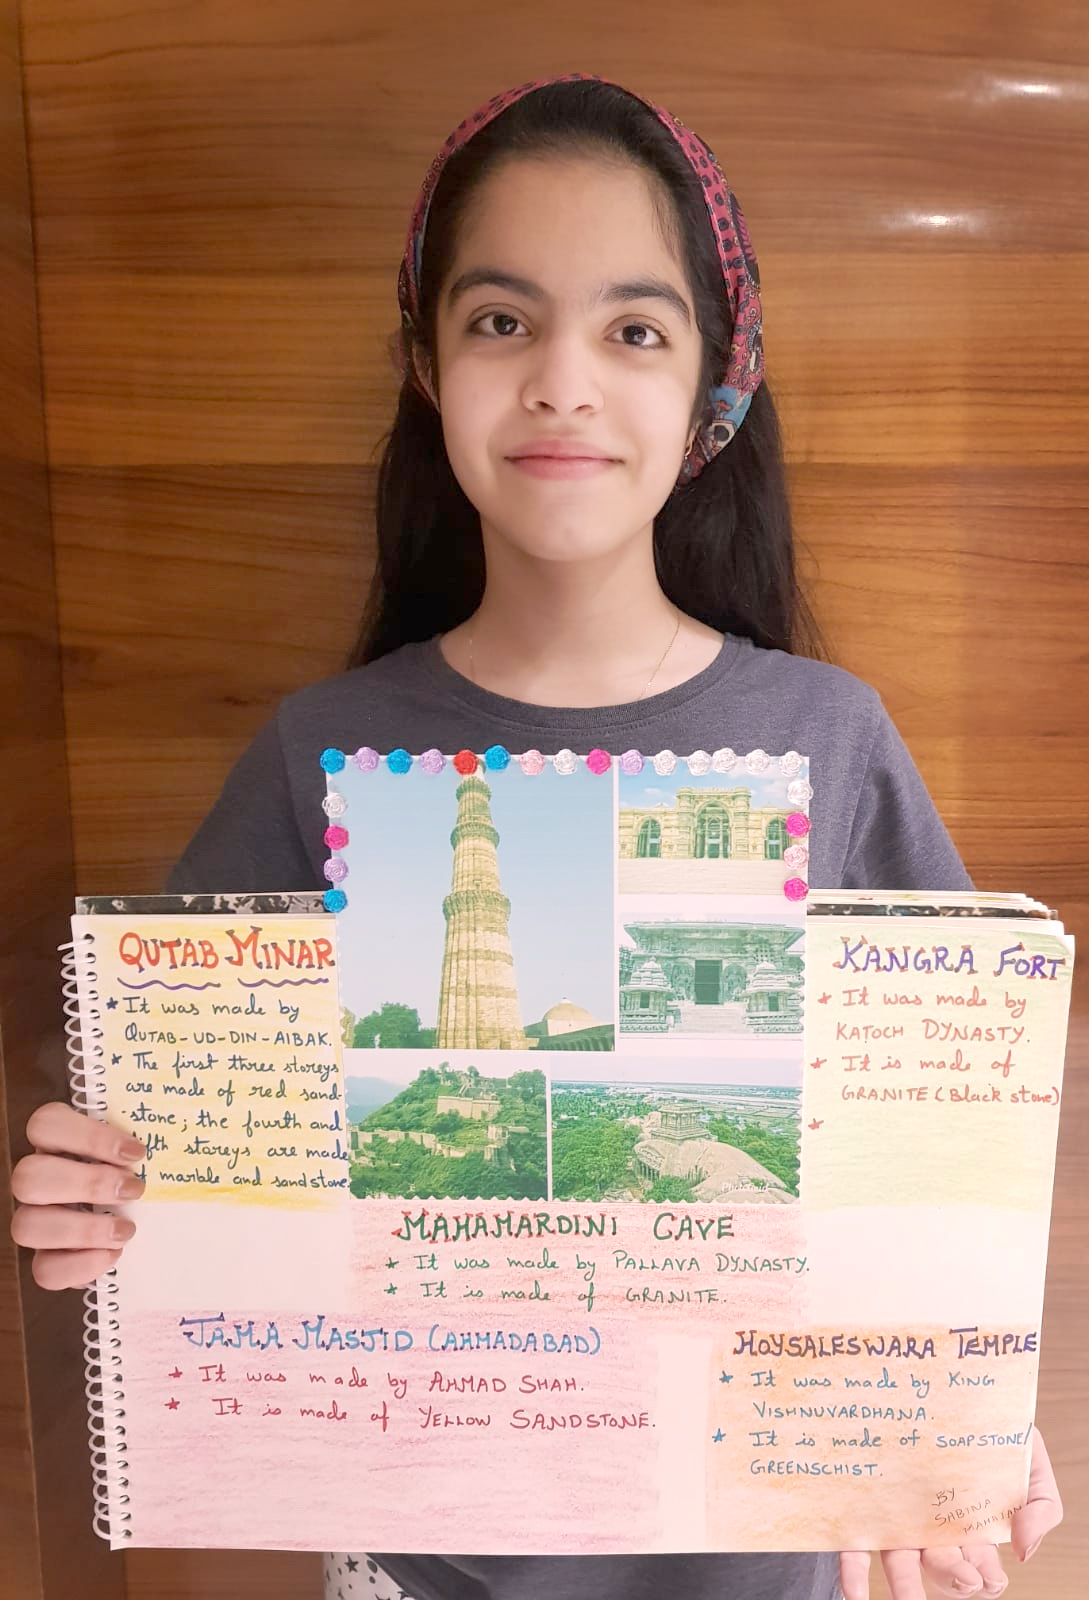 QUTAB MINAR
★ It was made by
QUTAB-UD-DIN-AIBAK.
★ The first three storeys
are made of red sand-
-stone; the fourth and
fifth storeys are made
of marble and sandstone.
KANGRA FORT
★ It was made by
KATOCH DYNASTY.
★ It is made of
GRANITE (Black stone)
★
MAHAMARDINI CAVE
★ It was made by PALLAVA DYNASTY.
★ It is made of GRANITE.
JAMA MASJID (AHMADABAD)
★ It was made by AHMAD SHAH.
★ It is made of YELLOW SANDSTONE.
HOYSALESWARA TEMPLE
★ It was made by KING
VISHNUVARDHANA.
★ It is made of SOAPSTONE/
GREENSCHIST.
BY-
SABINA
MAHAJAN